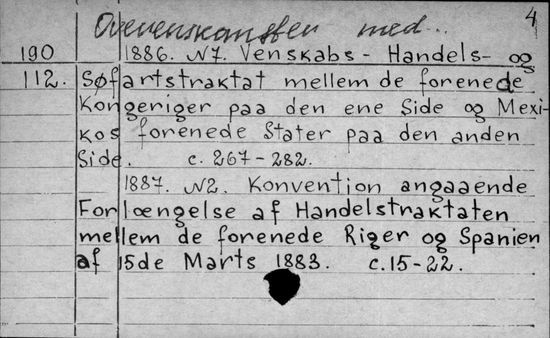 4
Overenskomster med..
190 1886. N7. Venskabs- Handels- og
112. Søfartstraktat mellem de forenede
Kongeriger paa den ene Side og Mexi-
kos forenede Stater paa den anden
Side. c. 267-282.
1887. N2. Konvention angaaende
Forlængelse af Handelstraktaten
mellem de forenede Riger og Spanien
af 15de Marts 1883. c. 15-22.